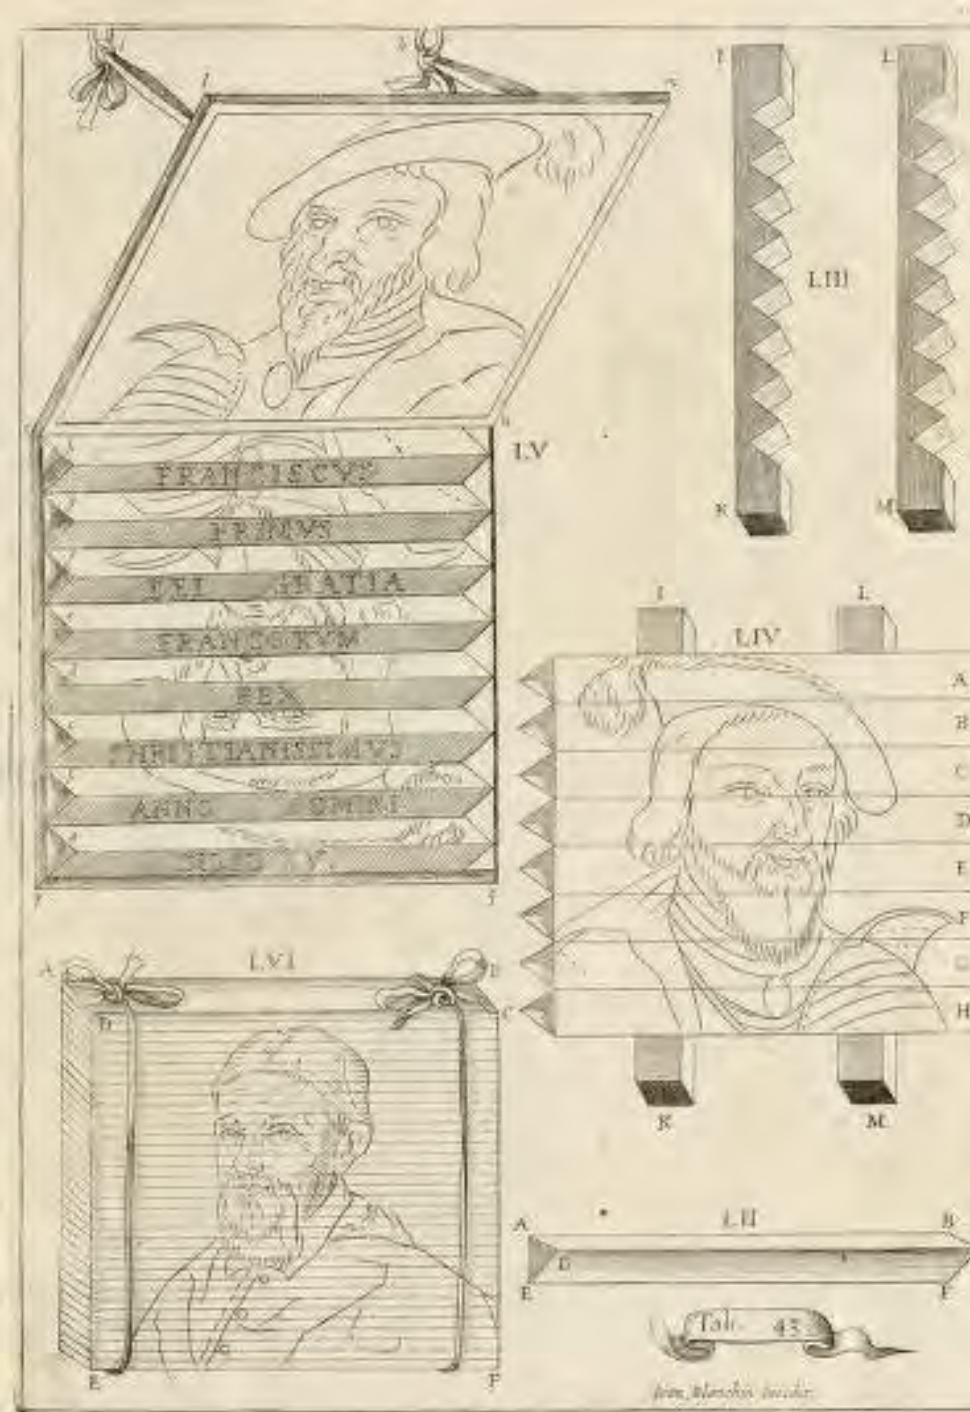 1
3
LIII
I
L
K
M
LV
FRANCISCVS
PRIMVS
DEI GRATIA
FRANCORVM
REX
CHRISTIANISSIMVS
ANNO DOMINI
I
L
LIV
A
B
C
D
E
F
G
H
K
M
LVI
A
B
D
C
E
F
LII
A
B
G
E
F
Tab. 43